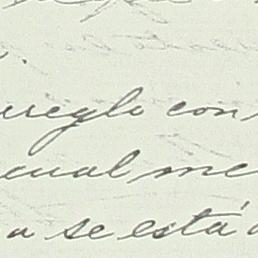 arreglo con
cual me
a se está